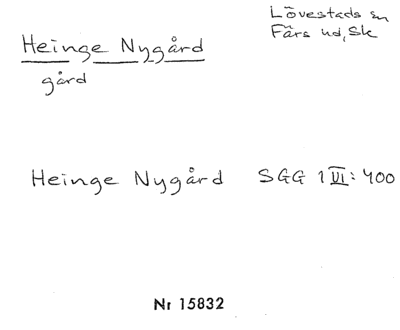 Lövestads sn
Färs hd, Sk
Heinge Nygård
gård
Heinge Nygård SGG 1 VI: 400
Nr 15832